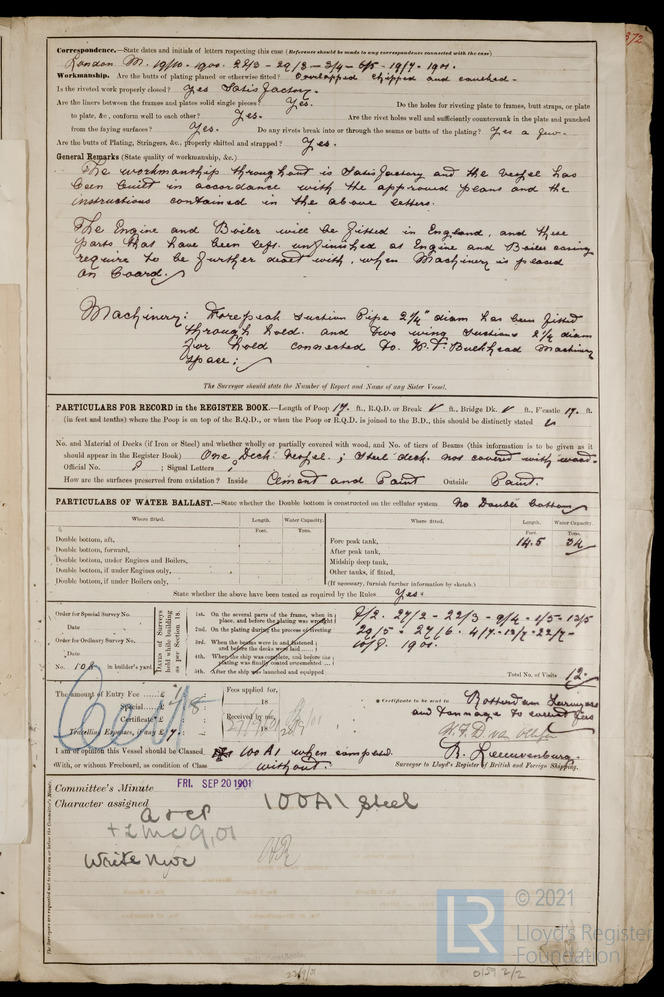 372
Correspondence.—State dates and initials of letters respecting this case (Reference should be made to any correspondence connected with the case)
London M. 19/10-1900. 22/3 - 29/3 - 3/4 - 6/5 - 19/7 - 1901.
Workmanship. Are the butts of plating planed or otherwise fitted? Overlapped chipped and caulked.
Is the riveted work properly closed? Yes Satisfactory.
Are the liners between the frames and plates solid single pieces? Yes. Do the holes for riveting plate to frames, butt straps, or plate
to plate, &c., conform well to each other? Yes. Are the rivet holes well and sufficiently countersunk in the plate and punched
from the faying surfaces? Yes. Do any rivets break into or through the seams or butts of the plating? Yes a few.
Are the butts of Plating, Stringers, &c., properly shifted and strapped? Yes.
General Remarks (State quality of workmanship, &c.)
The workmanship throughout is Satisfactory and the vessel has
been built in accordance with the approved plans and the
instructions contained in the above letters.
The Engine and Boiler will be fitted in England, and those
parts that have been left unfinished as Engine and Boiler casing
require to be further dealt with, when Machinery is placed
on board.
Machinery: Forepeak Suction Pipe 2½" diam has been fitted
through hold. and two wing suctions 2½ diam
for hold connected to W.T. Bulkhead Machinery
space;
The Surveyor should state the Number of Report and Name of any Sister Vessel.
PARTICULARS FOR RECORD in the REGISTER BOOK.—Length of Poop 17. ft., R.Q.D. or Break ft., Bridge Dk. ft., F'castle 17. ft.
(in feet and tenths) where the Poop is on top of the R.Q.D., or when the Poop or R.Q.D. is joined to the B.D., this should be distinctly stated
No. and Material of Decks (if Iron or Steel) and whether wholly or partially covered with wood, and No. of tiers of Beams (this information is to be given as it
should appear in the Register Book) One Deck Vessel.; Steel deck. not covered with wood.
Official No. ?; Signal Letters ?
How are the surfaces preserved from oxidation? Inside Cement and Paint Outside Paint.
PARTICULARS OF WATER BALLAST.—State whether the Double bottom is constructed on the cellular system No Double bottom
Where fitted. Length. Water Capacity. Where fitted. Length. Water Capacity.
Feet. Tons. Feet. Tons.
Double bottom, aft, Fore peak tank, 14.5 34
Double bottom, forward, After peak tank,
Double bottom, under Engines and Boilers, Midship deep tank,
Double bottom, if under Engines only, Other tanks, if fitted,
Double bottom, if under Boilers only, (If necessary, furnish further information by sketch.)
State whether the above have been tested as required by the Rules Yes.
Order for Special Survey No.
Date
Order for Ordinary Survey No.
Date
No. 108 in builder's yard
DATES of Surveys held while building as per Section 18.
1st. On the several parts of the frame, when in place, and before the plating was wrought
2nd. On the plating during the process of riveting
3rd. When the beams were in and fastened and before the decks were laid
4th. When the ship was complete, and before the plating was finally coated or cemented
5th. After the ship was launched and equipped
7/2. 27/2 - 22/3 - 9/4 - 1/5 - 13/5
29/5 - 27/6. 4/7 - 13/7 - 22/7 -
10/8. 1901.
Total No. of Visits 12.
The amount of Entry Fee £
Special £
Certificate £
Travelling Expenses, if any £
Fees applied for,
18
Received by me,
18
Certificate to be sent to Rotterdam Surveyors
and tonnage to correct fees
I am of opinion this Vessel should be Classed 100A1 when completed.
(With, or without Freeboard, as condition of Class without.
R. Leeuwenburg.
Surveyor to Lloyd's Register of British and Foreign Shipping.
Committee's Minute FRI. SEP 20 1901
Character assigned 100A1 Steel
a & cp
+ LMC 9,01
Write
The Surveyors are requested not to write on or below the Committee's Minute.
22/9/01
0159 2/2
LR
© 2021
Lloyd's Register
Foundation